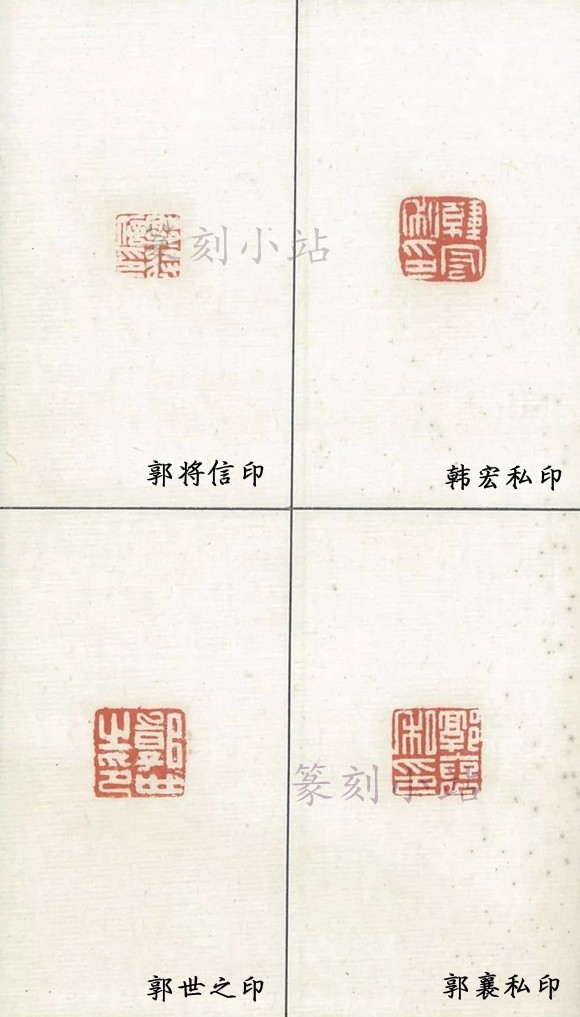 篆刻小站
郭将信印
韩宏私印
篆刻小站
郭世之印
郭襄私印